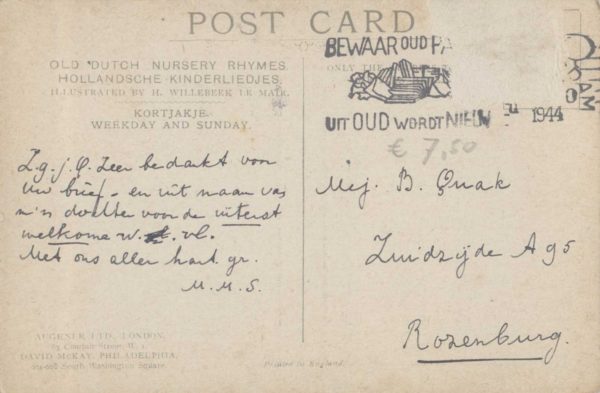 POST CARD
OLD DUTCH NURSERY RHYMES.
HOLLANDSCHE KINDERLIEDJES.
ILLUSTRATED BY H. WILLEBEEK LE MAIR.
KORTJAKJE.
WEEKDAY AND SUNDAY.
Z.g.j.Q. Zeer bedankt voor
Uw brief - en uit naam van
m'n dochter voor de uiterst
welkome w. vl.
Met ons aller hart. gr.
M.M.S.
AUGENER LTD. LONDON.
DAVID McKAY, PHILADELPHIA,
604-608 South Washington Square.
Printed in England.
ONLY THE
BEWAAR OUD PA
UIT OUD WORDT NIEUW
1944
€ 7,50
Mej. B. Quak
Zuidzijde A 95
Rozenburg.